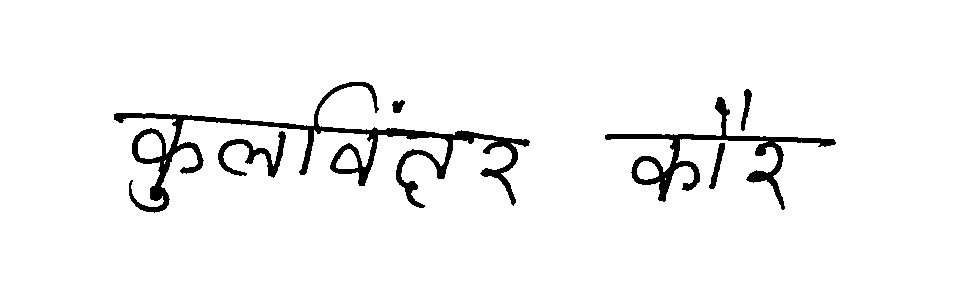 कुलविंद्र कौर